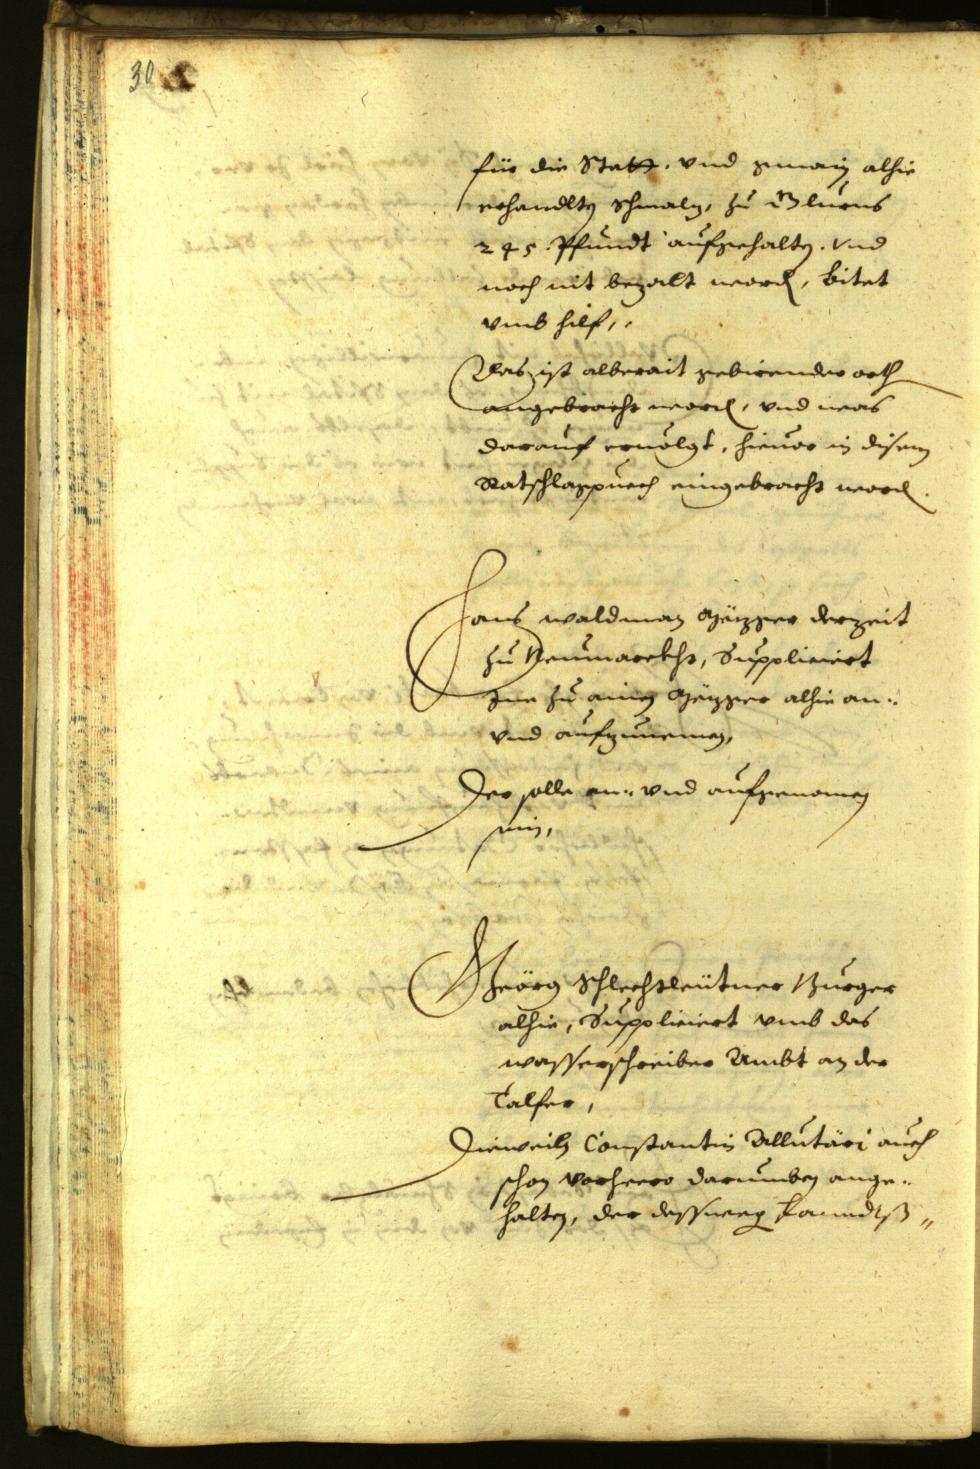 30
für die Statt, vnd gmain alhie
erhandlten Schmalz, zu Glurns
245 Pfundt aufgehalten. Vnd
noch nit bezalt worden, bitet
vmb hilf,,
Das ist alberait gebirender orth
angebracht worden, vnd was
darauf ervolgt, hievor in disem
Ratschlagpuech eingebracht worden.
Hans Waldman Mezger derzeit
zu Neumarckht, Suppliciert
Ine zu ainem Mezger alhie an-
vnd aufzunemen,
Der solle an- vnd aufgenomen
sein,
Geörg Schlechtleütner Burger
alhie, Suppliciert vmb das
wasserschreiber Ambt an der
Talfer,
Dieweil Constantin Allutäri auch
schon vorhero darumben ange-
halten, der desswegen